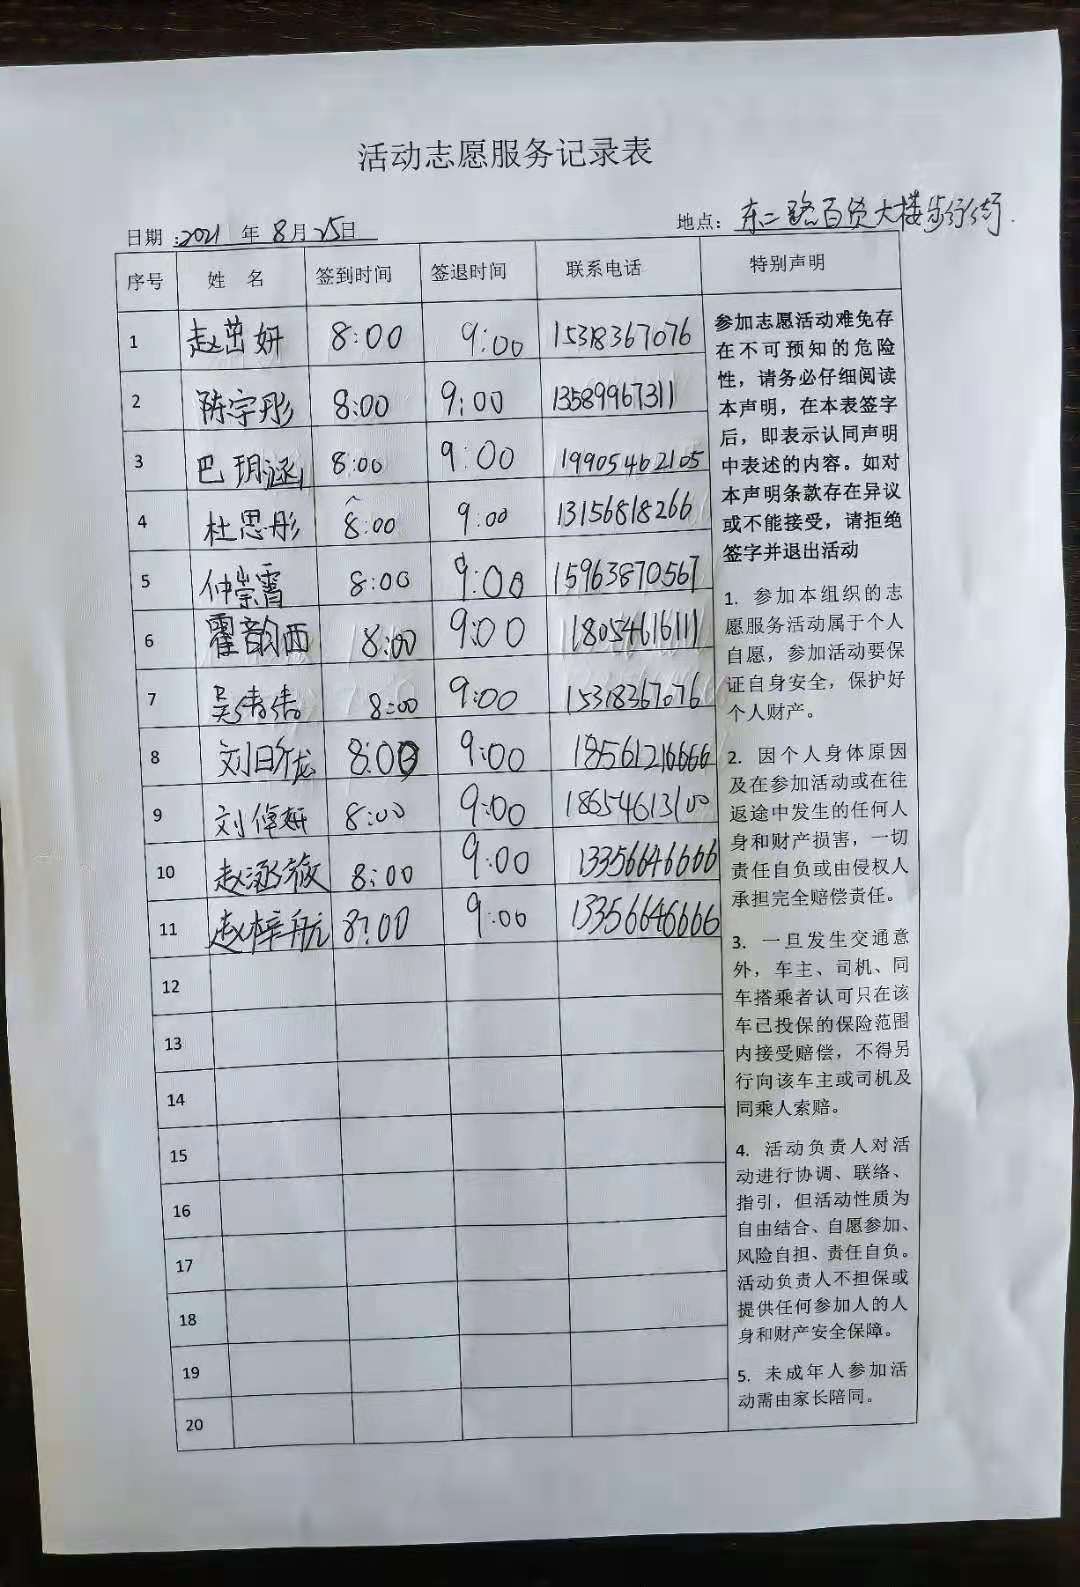 活动志愿服务记录表
日期:2021 年 8月25日 地点: 东二路百货大楼步行街.
序号 姓 名 签到时间 签退时间 联系电话 特别声明
1 赵茁妍 8:00 9:00 15318367076
2 陈宇彤 8:00 9:00 13589967311
3 巴玥涵 8:00 9:00 19905462105
4 杜思彤 8:00 9:00 13156818266
5 仲崇霄 8:00 9:00 15963870567
6 霍韵西 8:00 9:00 18054616111
7 吴 8:00 9:00 15318367076
8 刘 8:00 9:00 18561216666
9 刘倬妍 8:00 9:00 18654613100
10 赵涵 8:00 9:00 13356646666
11 赵梓航 8:00 9:00 13356646666
12
13
14
15
16
17
18
19
20
参加志愿活动难免存
在不可预知的危险
性，请务必仔细阅读
本声明，在本表签字
后，即表示认同声明
中表述的内容。如对
本声明条款存在异议
或不能接受，请拒绝
签字并退出活动
1. 参加本组织的志
愿服务活动属于个人
自愿，参加活动要保
证自身安全，保护好
个人财产。
2. 因个人身体原因
及在参加活动或在往
返途中发生的任何人
身和财产损害，一切
责任自负或由侵权人
承担完全赔偿责任。
3. 一旦发生交通意
外，车主、司机、同
车搭乘者认可只在该
车已投保的保险范围
内接受赔偿，不得另
行向该车主或司机及
同乘人索赔。
4. 活动负责人对活
动进行协调、联络、
指引，但活动性质为
自由结合、自愿参加、
风险自担、责任自负。
活动负责人不担保或
提供任何参加人的人
身和财产安全保障。
5. 未成年人参加活
动需由家长陪同。